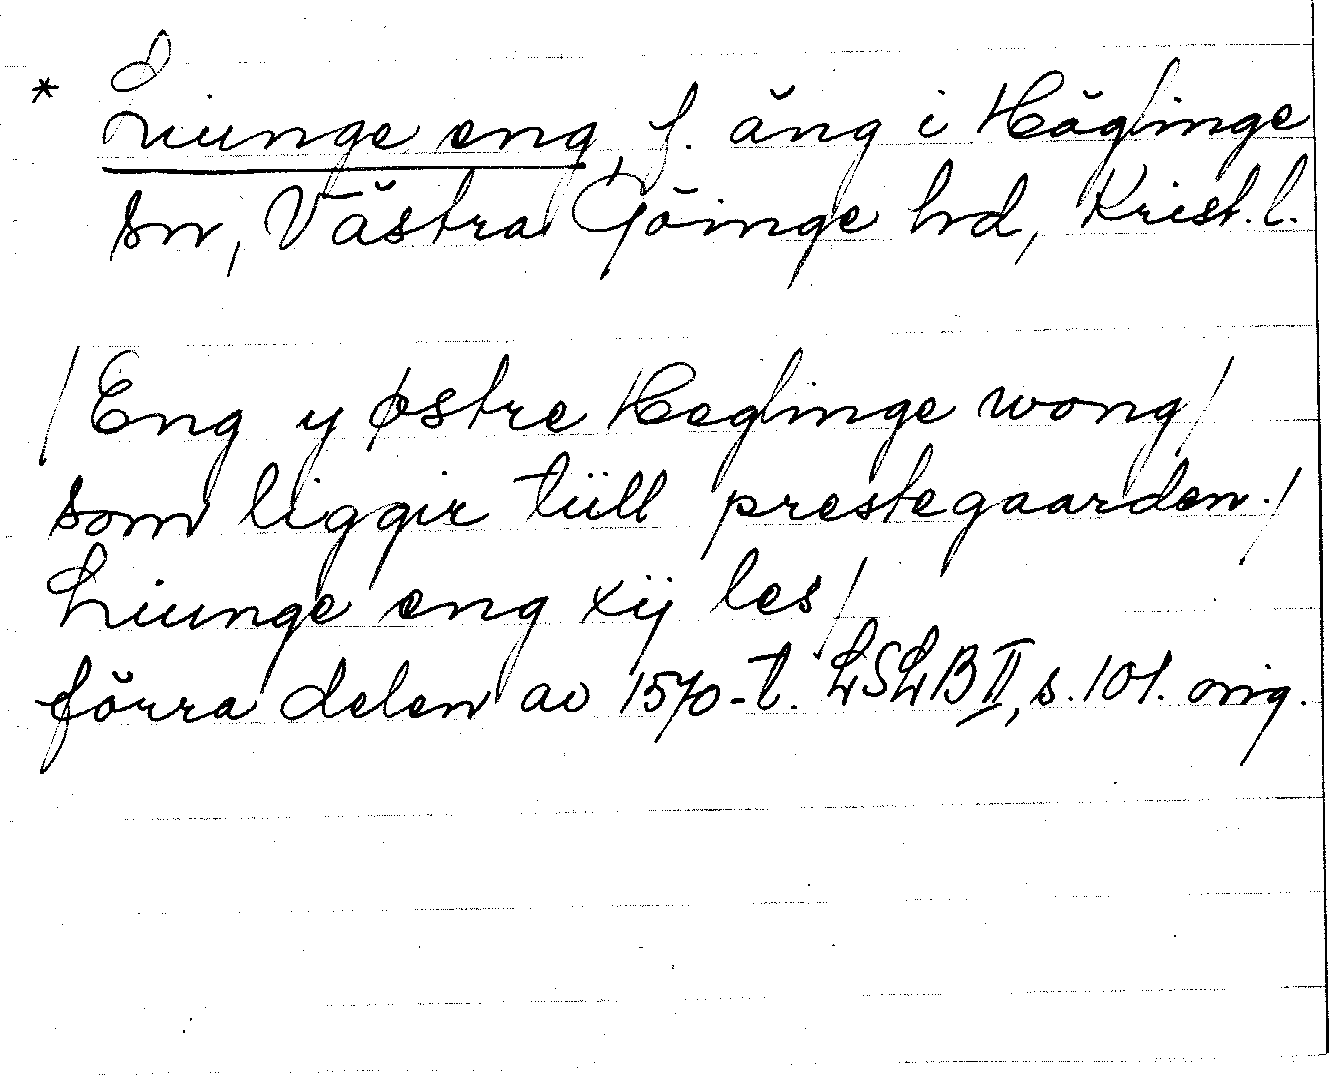 * Liunge eng, f. äng i Häglinge
sn, Västra Göinge hd, Krist. l.
/Eng y østre Heglinge wong/
som liggir tüll prestegaarden./
Liunge eng xij les/
förra delen av 1570-t. LSLB II, s. 101. orig.